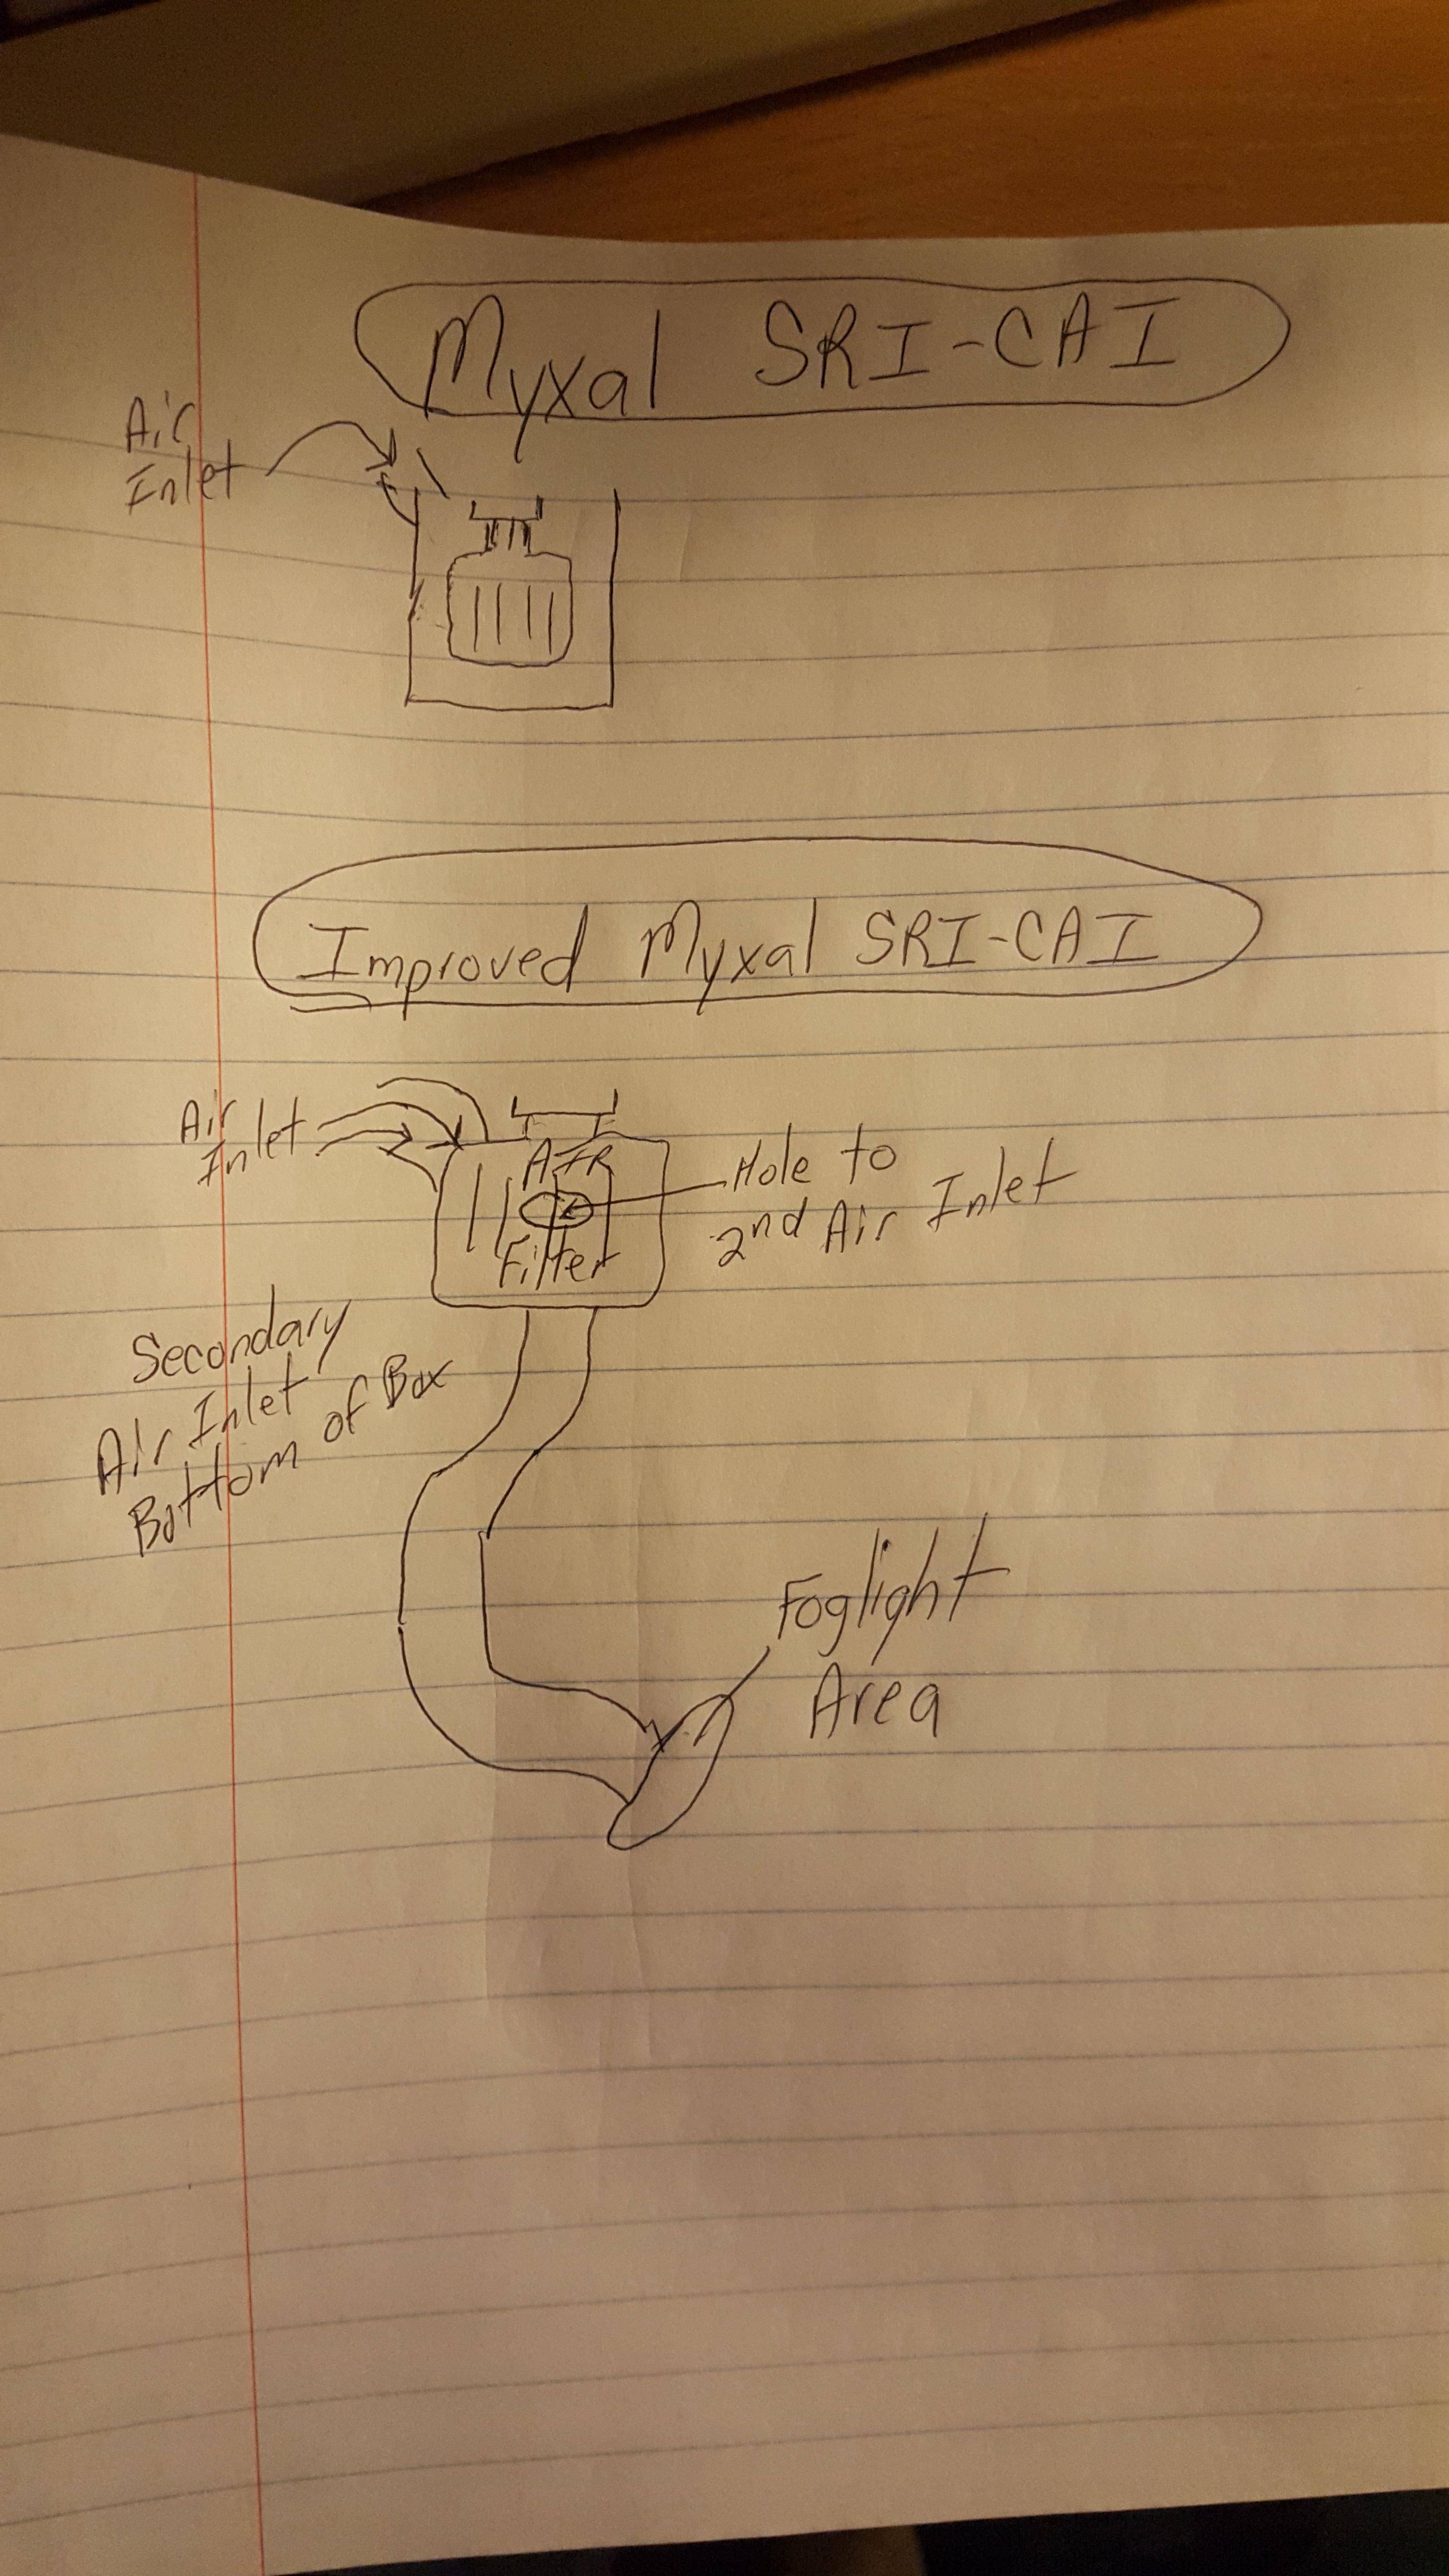 Myxal SRI-CAI
Air
Inlet
Improved Myxal SRI-CAI
Air
Inlet
AIR
Filter
Hole to
2nd Air Inlet
Secondary
Air Inlet
Bottom of Box
Foglight
Area